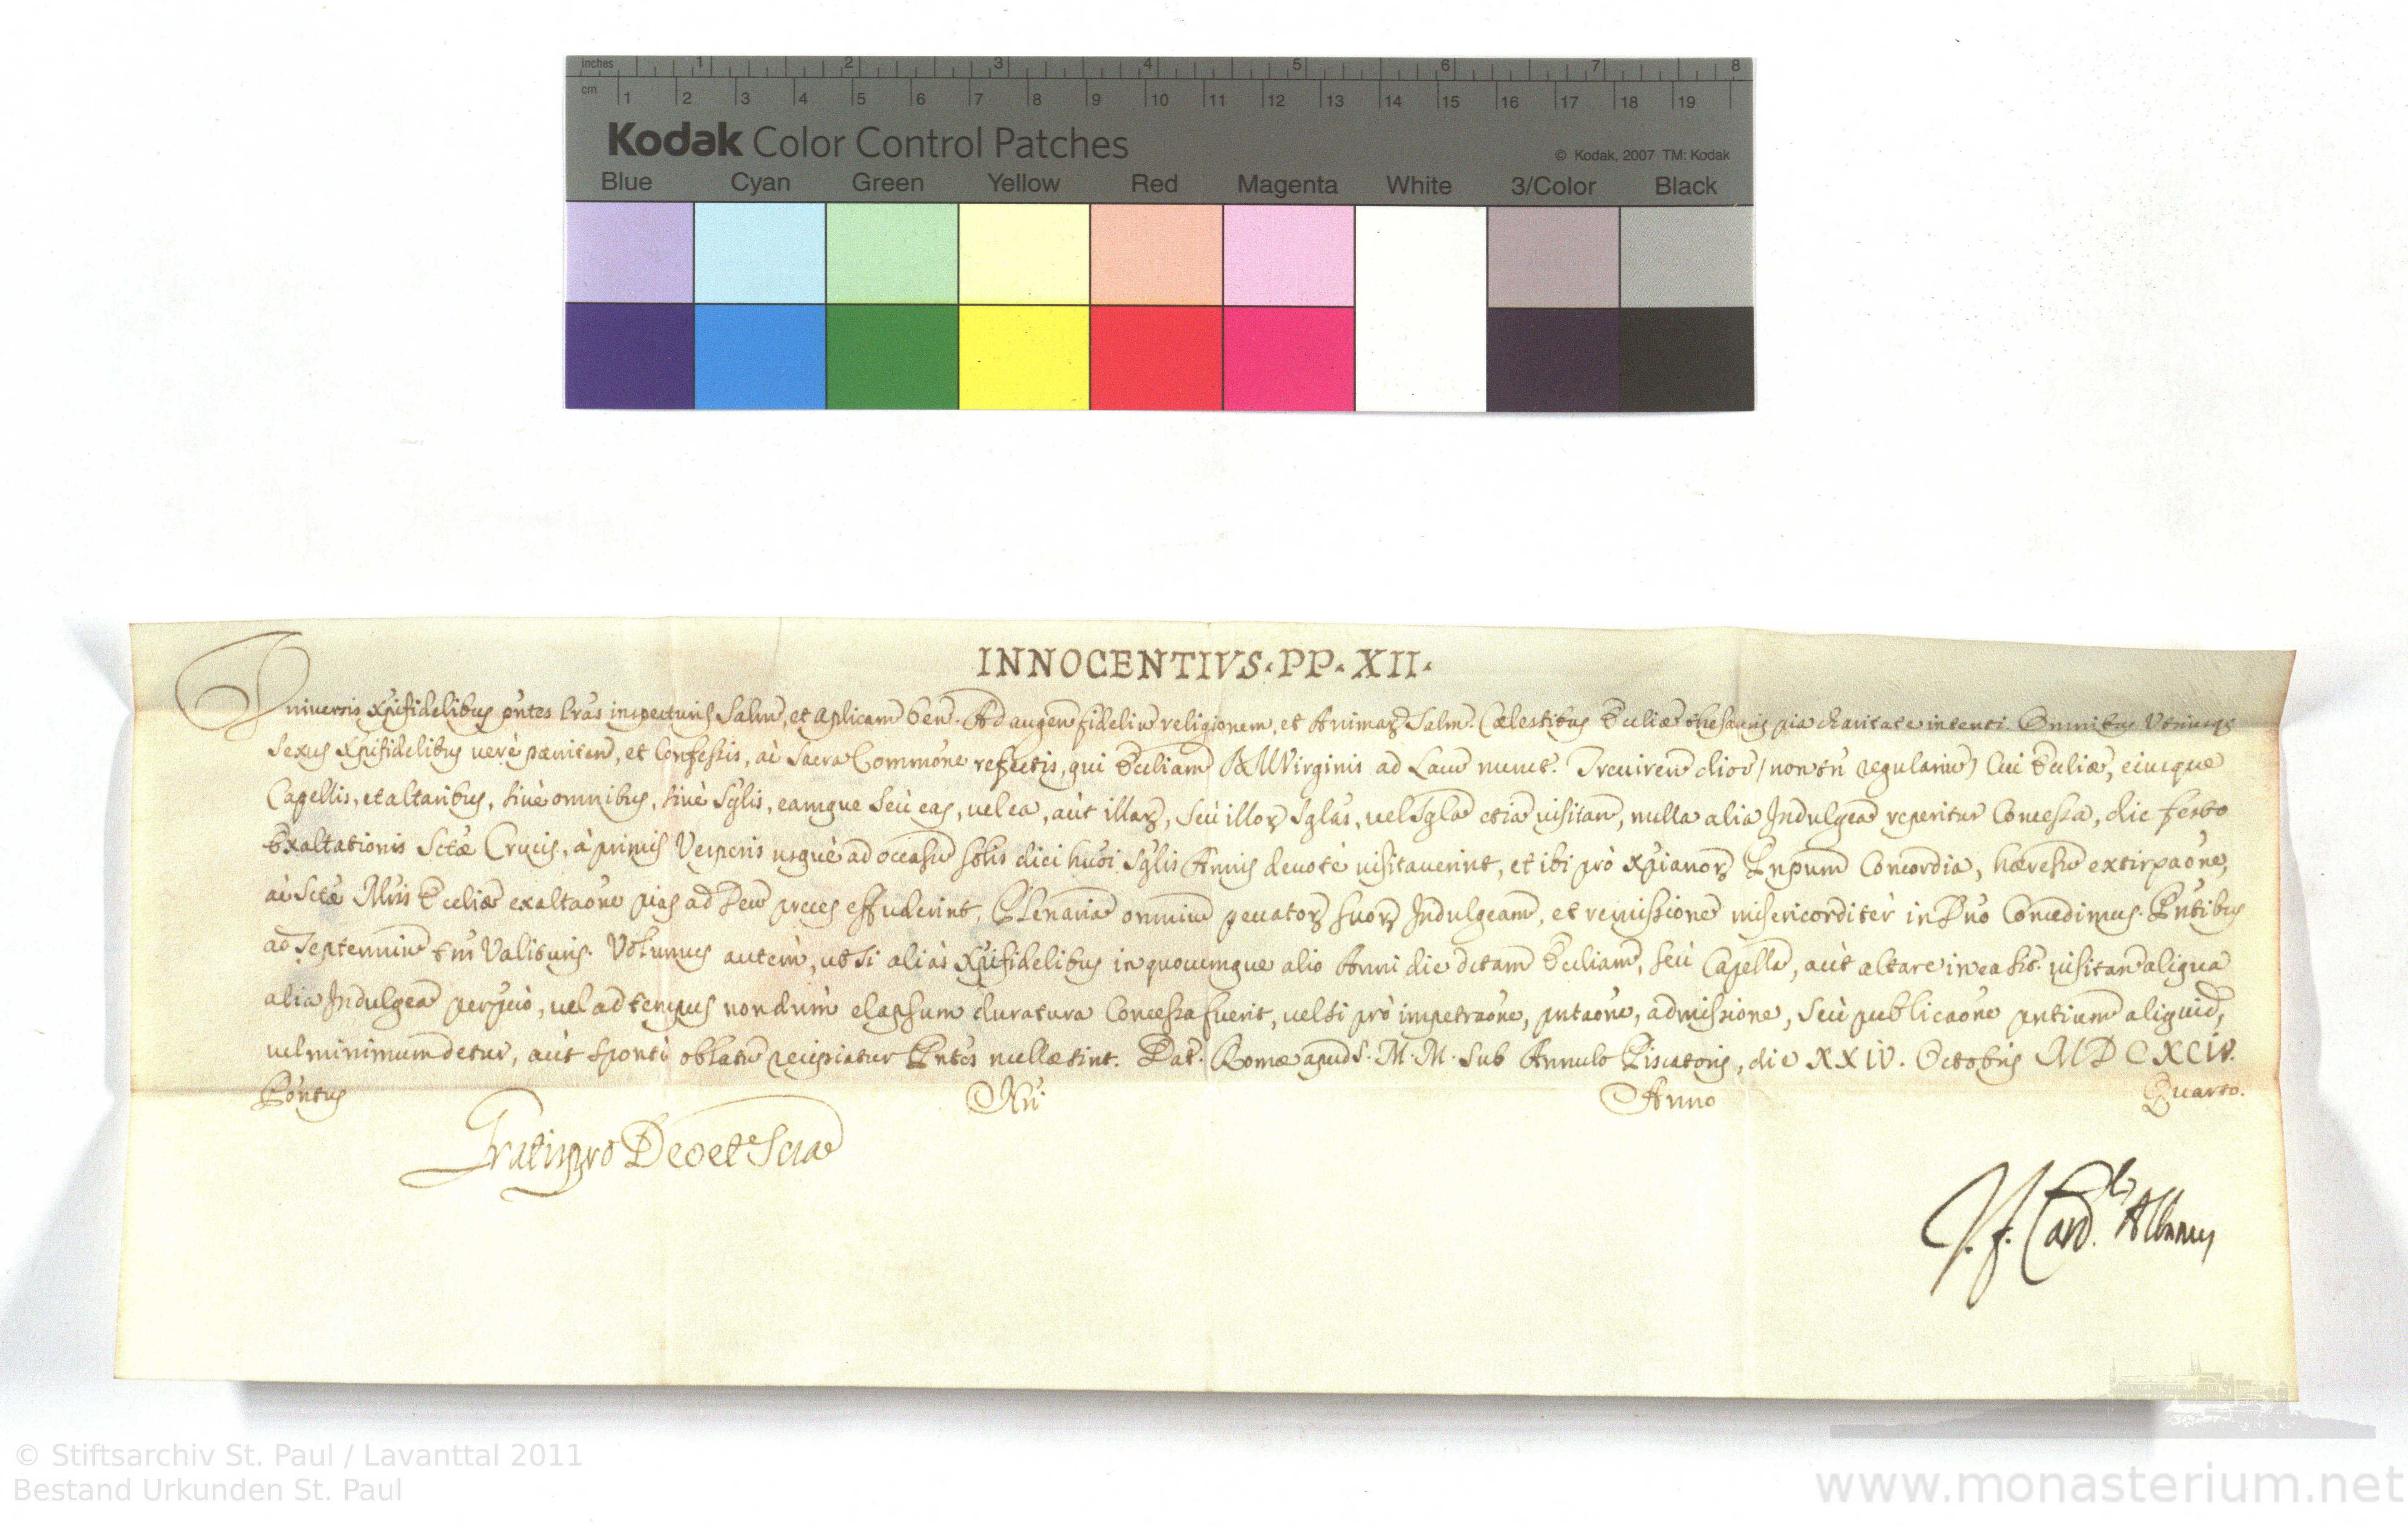 inches 1 2 3 4 5 6 7 8
cm 1 2 3 4 5 6 7 8 9 10 11 12 13 14 15 16 17 18 19
Kodak Color Control Patches
© Kodak, 2007 TM: Kodak
Blue Cyan Green Yellow Red Magenta White 3/Color Black
INNOCENTIVS·PP·XII·
Vniversis Xpifidelibus pntes lras inspecturis Salm, et Aplicam ben. Ad augen fideliu religionem, et Animaꝝ Salm. Cælestibus Eccliæ thesauris pia charitate intenti. Omnibus Vtriusqꝫ
Sexus Xpifidelibus verè pæniten, et Confessis, ac Sacra Commone refectis, qui Eccliam B. M. Virginis ad Lacu nunct. Treviren dioc (non tn regulariu) Cui Ecclia, eiusque
Capellis, et altaribus, sivè omnibus, sivè Sglis, eamque seù eas, vel ea, aùt illaꝝ, seù illoꝝ Sglas, vel Sgla etia visitan, nulla alia Indulgea reperitur Concessa, die festo
Exaltationis Sctæ Crucis, à primis Vesperis usquè ad occasu solis diei huoi Sglis Annis devotè visitaverint, et ibi prò Xpianoꝝ Pnpum Concordia, hæresu extirpaone,
ac Sctæ Mris Ecclia exaltaone pias ad Deu preces effuderint, Plenaria omniu peccatoꝝ suoꝝ Indulgeam, et remissione misericorditèr in Dno Concedimus. Pntibus
ad Septenniu tm Valituris. Volumus autem, ut si aliàs Xpifidelibus in quocumque alio Anni die dctam Eccliam, seù Capella, aùt altare in ea sit. visitan aliqua
alia Indulgea perpuò, vel ad tempus nondum elapsum duratura Concessa fuerit, vel si prò impetraone, pntaone, admissione, seù publicaone pntium aliquid,
vel minimum detur, aùt spontè oblatu recipiatur Pntes nullæ sint. Dat. Romæ apud S. M. M. Sub Annulo Piscatoris, die XXIV. Octobris MDCXCIV.
Pontus Nri Anno Quarto.
Gratis pro Deo et Scra
J. F. Card.lis Albanus
© Stiftsarchiv St. Paul / Lavanttal 2011
Bestand Urkunden St. Paul
www.monasterium.net